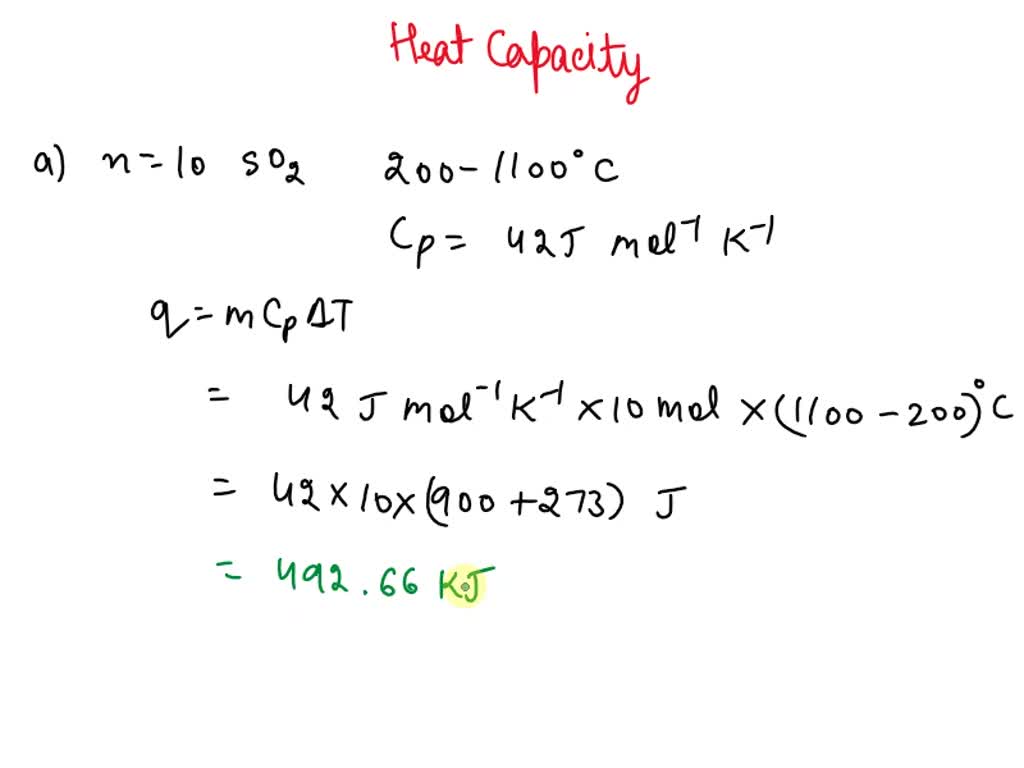 Heat Capacity
a) n=10 SO₂ 200-1100°C
Cp = 42J mol⁻¹ K⁻¹
q = m Cp ΔT
= 42 J mol⁻¹ K⁻¹ × 10 mol × (1100 - 200)°C
= 42 × 10 × (900 + 273) J
= 492.66 KJ